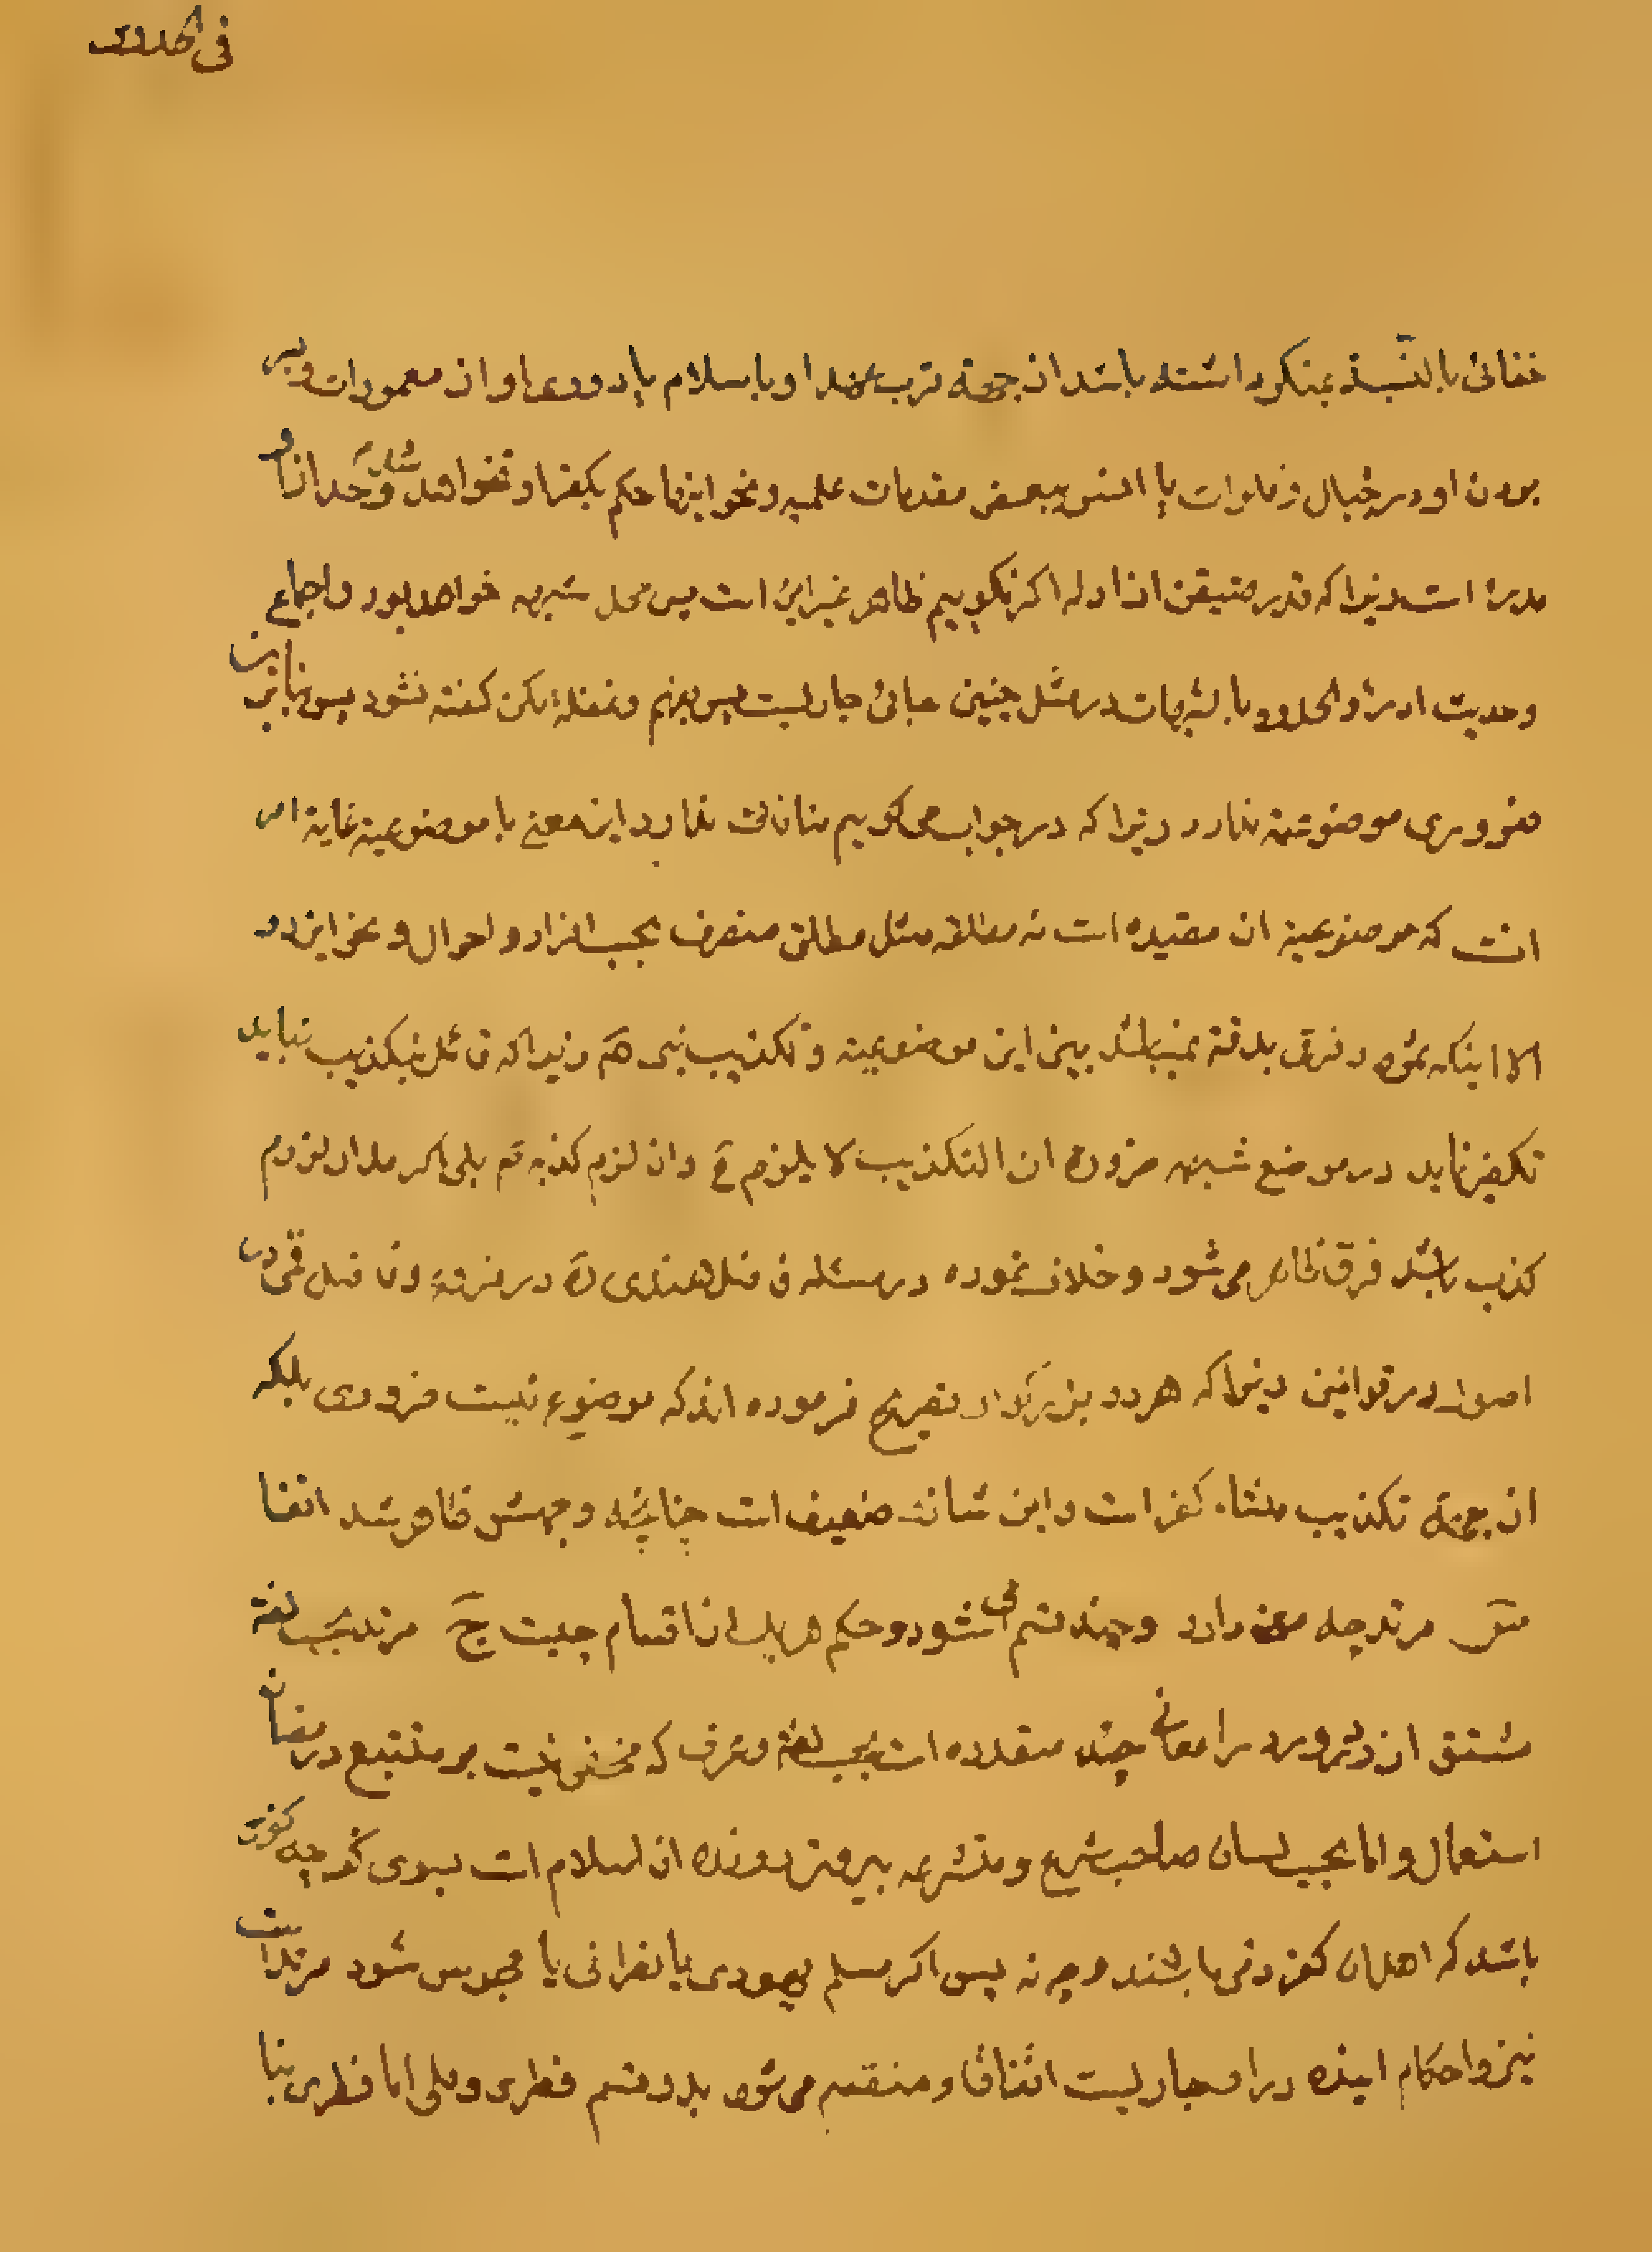 فی الحدود
خفائی بالنسبة بمنکر داشته باشد از جهة قرب عهد او باسلام یا دوری او از معمورات و
بودن او در جبال و فلوات یا انس ببعض مقدمات علمیه و نحو اینها حکم بکفر او نخواهد شد و حد از او
مدرئ است زیرا که قدر متیقن از ادله اکر نکوییم ظاهر غیر این است پس محل شبهه خواهد بود و اجماع
و حدیث ادرؤا الحدود بالشبهات در مثل چنین جائی جاریست پس بفهم و غفله مکن کفته نشود پس بنابراین
ضروری موضوعیة ندارد زیرا که در جواب میکوییم منافات ندارد این معنی با موضوعیة غایة امر
انست که موضوعیة ان مقیده است نه مطلقه مثل مطلق منصرف بحسب افراد و احوال و نحو این دو
الا اینکه ثمره و فرق بدقة نمیباشد بین این موضوعیة و تکذیب نبی هم زیرا که قائل بتکذیب نباید
تکفیر نماید در موضع شبهه ضرورة ان التکذیب لا یلزم ح وان لزم کذبه تم بلی اکر مدار لزوم
کذب باشد فرق ظاهر می شود و خلاف نموده در مسئله فاضل هندی ره در و فاضل قمی در
اصول در قوانین زیرا که هر دو بزرکوار تصریح فرموده اند که موضوع نیست ضروری بلکه
از جهة تکذیب منشاء کفر است و این شانش ضعیف است چنانچه وجهش ظاهر شد انفا
س مرتد چه معنی دارد و چند قسم می شود و حکم هریک از اقسام چیست ج مرتد بحسب لغة
مشتق از رد و ردرا معانی چند متعدده است بحسب لغة و عرف که مخفی نیست بر متتبع در مضان
استعمال و اما بحسب لسان صاحب شرع و متشرعه بیرون رونده از اسلام است بسوی کفر چه کفری
باشد که اهل ان کفر ذمی باشند و چه نه پس اکر مسلم یهودی یا نصرانی یا مجوس شود مرتد است
نیز و احکام اینده در او جاریست اتفاقا و منقسم می شود بدو قسم فطری و ملی اما فطری بنا